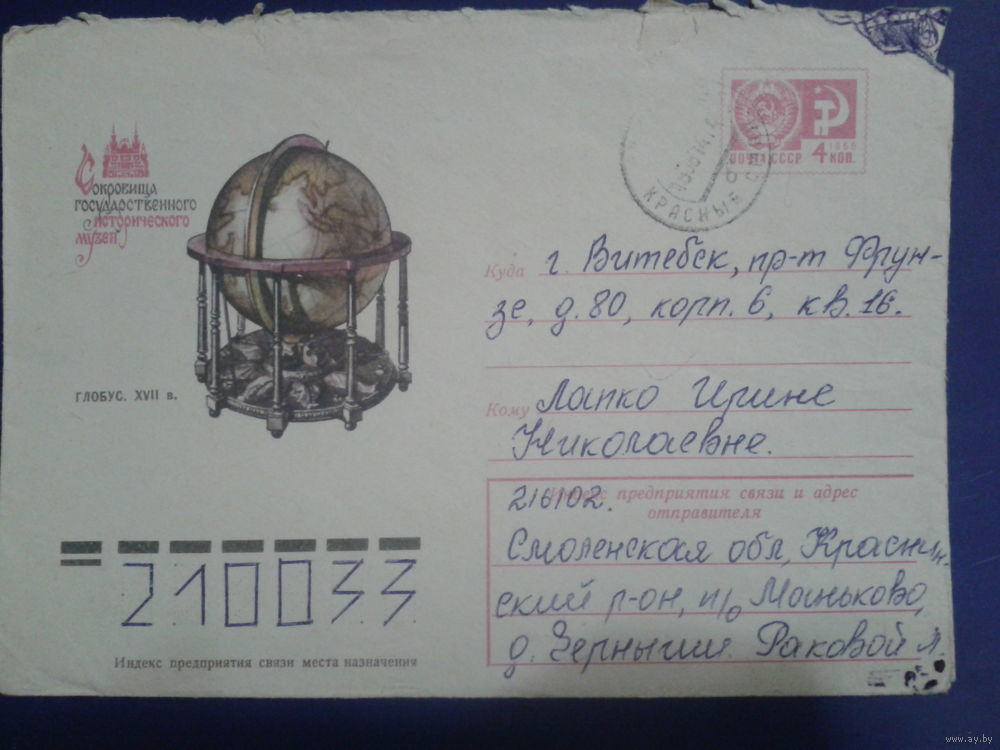 Сокровища
Государственного
Исторического
музея
ГЛОБУС. XVII в.
ПОЧТА СССР
4 КОП.
1966
КРАСНЫЕ
Куда г. Витебск, пр-т Фрун-
зе, д. 80, корп. 6, кв. 16.
Кому Лапко Ирине
Николаевне.
Индекс предприятия связи и адрес
отправителя
216102.
Смоленская обл, Краснин-
ский р-он, п/о Маньково,
д. Зерныши Раковой Л.
210033
Индекс предприятия связи места назначения
www.ay.by